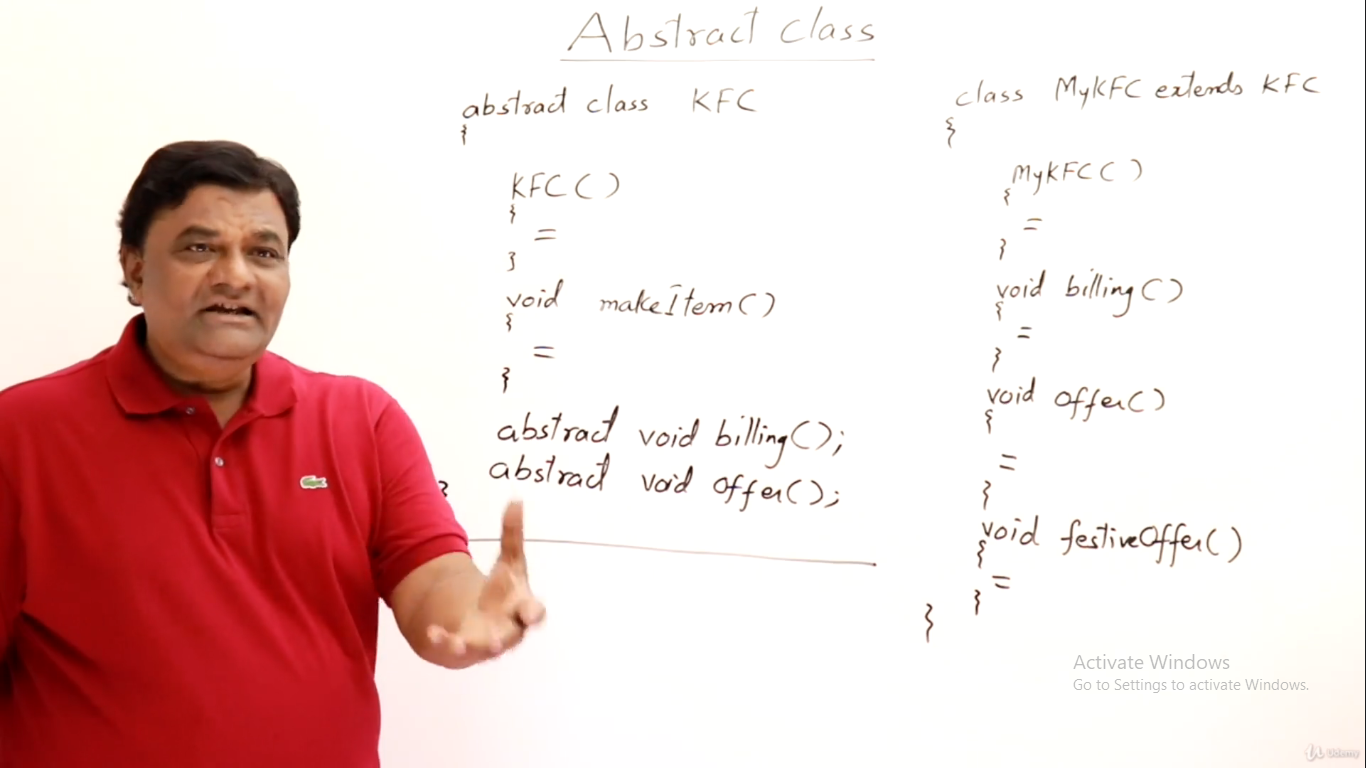 Abstract Class
abstract class KFC
{
KFC()
{
=
}
void makeItem()
{
=
}
abstract void billing();
abstract void offer();
}
class MyKFC extends KFC
{
MyKFC()
{
=
}
void billing()
{
=
}
void offer()
{
=
}
void festiveOffer()
{
=
}
}
Activate Windows
Go to Settings to activate Windows.
Udemy